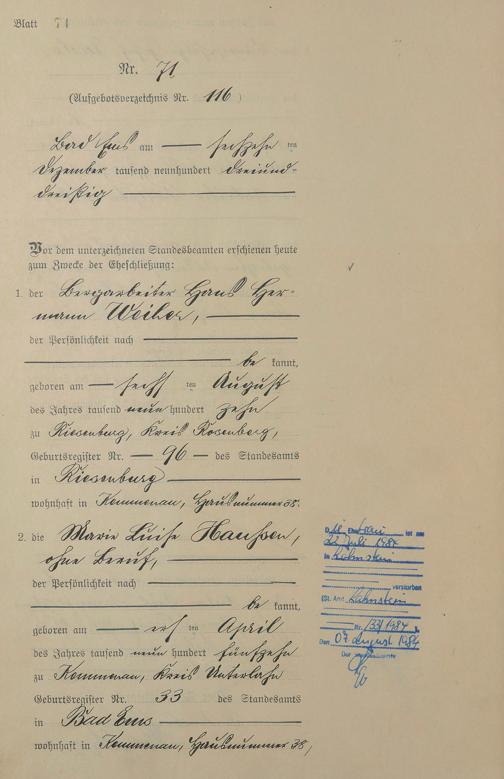 Blatt 71
Nr. 71
(Aufgebotsverzeichnis Nr. 116 )
Bad Ems am sechzehn ten
Dezember tausend neunhundert dreiund-
dreißig
Vor dem unterzeichneten Standesbeamten erschienen heute
zum Zwecke der Eheschließung:
1. der Bergarbeiter Hans Her-
mann Weiher,
der Persönlichkeit nach
be kannt,
geboren am sechs ten August
des Jahres tausend neun hundert zehn
zu Riesenburg, Kreis Rosenberg,
Geburtsregister Nr. 96 des Standesamts
in Riesenburg
wohnhaft in Kemmenau, Hausnummer 38.
2. die Marie Luise
ohne Beruf,
der Persönlichkeit nach
be kannt,
geboren am ten April
des Jahres tausend neun hundert fünfzehn
zu Kemmenau, Kreis Unterlahn
Geburtsregister Nr. 33 des Standesamts
in Bad Ems
wohnhaft in Kemmenau, Hausnummer 38,
D ie Ehefrau ist am
22. Juli 1987
in Lahnstein
verstorben
(St. Amt Lahnstein
Nr. 133/1987 )
Den 07. August 1987
Der Standesbeamte